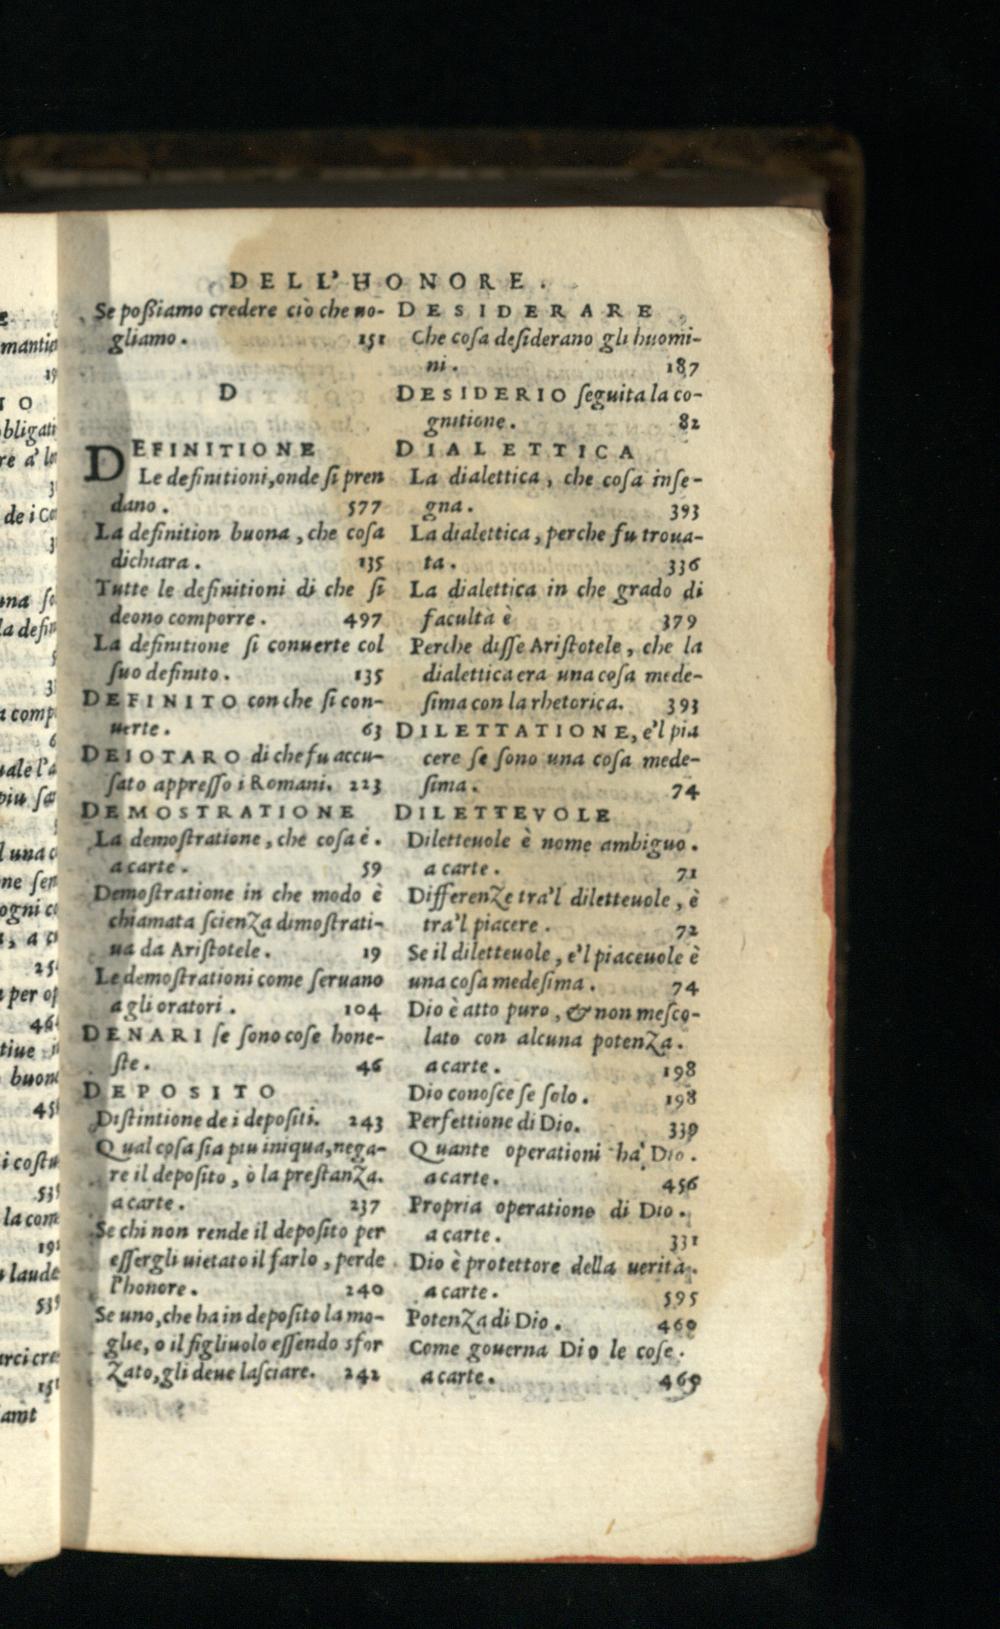 DELL'HONORE.
Se poſſiamo credere ciò che no-
gliamo. 151
D
DEFINITIONE
Le definitioni, onde ſi pren
dano. 577
La definition buona, che coſa
dichiara. 135
Tutte le definitioni di che ſi
deono comporre. 497
La definitione ſi conuerte col
ſuo definito. 135
DEFINITO con che ſi con-
uerte. 63
DEIOTARO di che fu accu-
ſato appreſſo i Romani. 223
DEMOSTRATIONE
La demoſtratione, che coſa è.
a carte. 59
Demoſtratione in che modo è
chiamata ſcienza dimoſtrati-
ua da Ariſtotele. 19
Le demoſtrationi come ſeruano
a gli oratori. 104
DENARI ſe ſono coſe hone-
ſte. 46
DEPOSITO
Diſtintione de i depoſiti. 243
Qual coſa ſia piu iniqua, nega-
re il depoſito, ò la preſtanza.
a carte. 237
Se chi non rende il depoſito per
eſſergli uietato il farlo, perde
l'honore. 240
Se uno, che ha in depoſito la mo-
glie, o il figliuolo eſſendo sfor
zato, gli deue laſciare. 242
DESIDERARE
Che coſa deſiderano gli huomi-
ni. 187
DESIDERIO ſeguita la co-
gnitione. 82
DIALETTICA
La dialettica, che coſa inſe-
gna. 393
La dialettica, perche fu troua-
ta. 336
La dialettica in che grado di
facultà è 379
Perche diſſe Ariſtotele, che la
dialettica era una coſa mede-
ſima con la rhetorica. 393
DILETTATIONE, e'l pia
cere ſe ſono una coſa mede-
ſima. 74
DILETTEVOLE
Diletteuole è nome ambiguo.
a carte. 71
Differenze tra'l diletteuole, è
tra'l piacere. 72
Se il diletteuole, e'l piaceuole è
una coſa medeſima. 74
Dio è atto puro, & non meſco-
lato con alcuna potenza.
a carte. 198
Dio conoſce ſe ſolo. 198
Perfettione di Dio. 339
Quante operationi ha Dio.
a carte. 456
Propria operatione di Dio.
a carte. 331
Dio è protettore della uerità.
a carte. 595
Potenza di Dio. 460
Come gouerna Dio le coſe.
a carte. 469